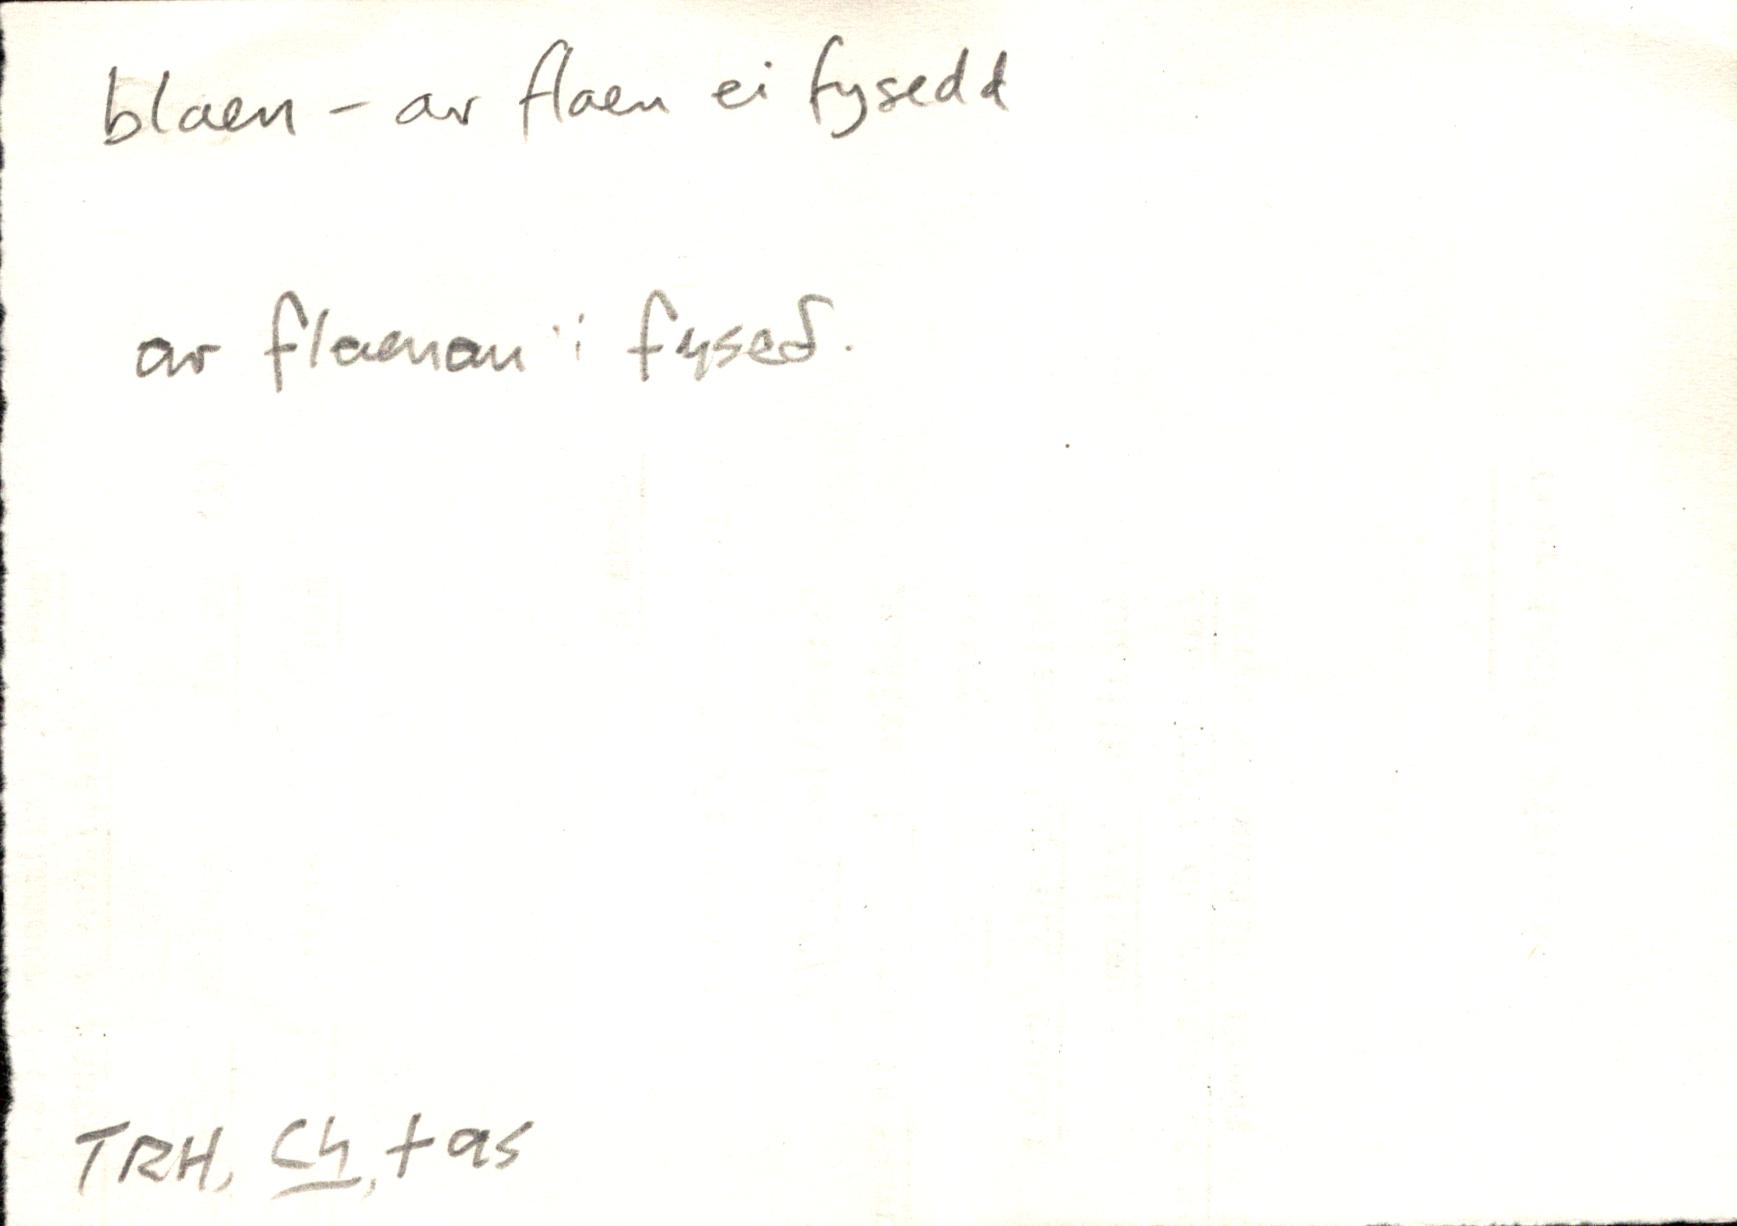 blaen - ar flaen ei fysedd
ar flaenau 'i fysedd.
TRH, Ch, tas